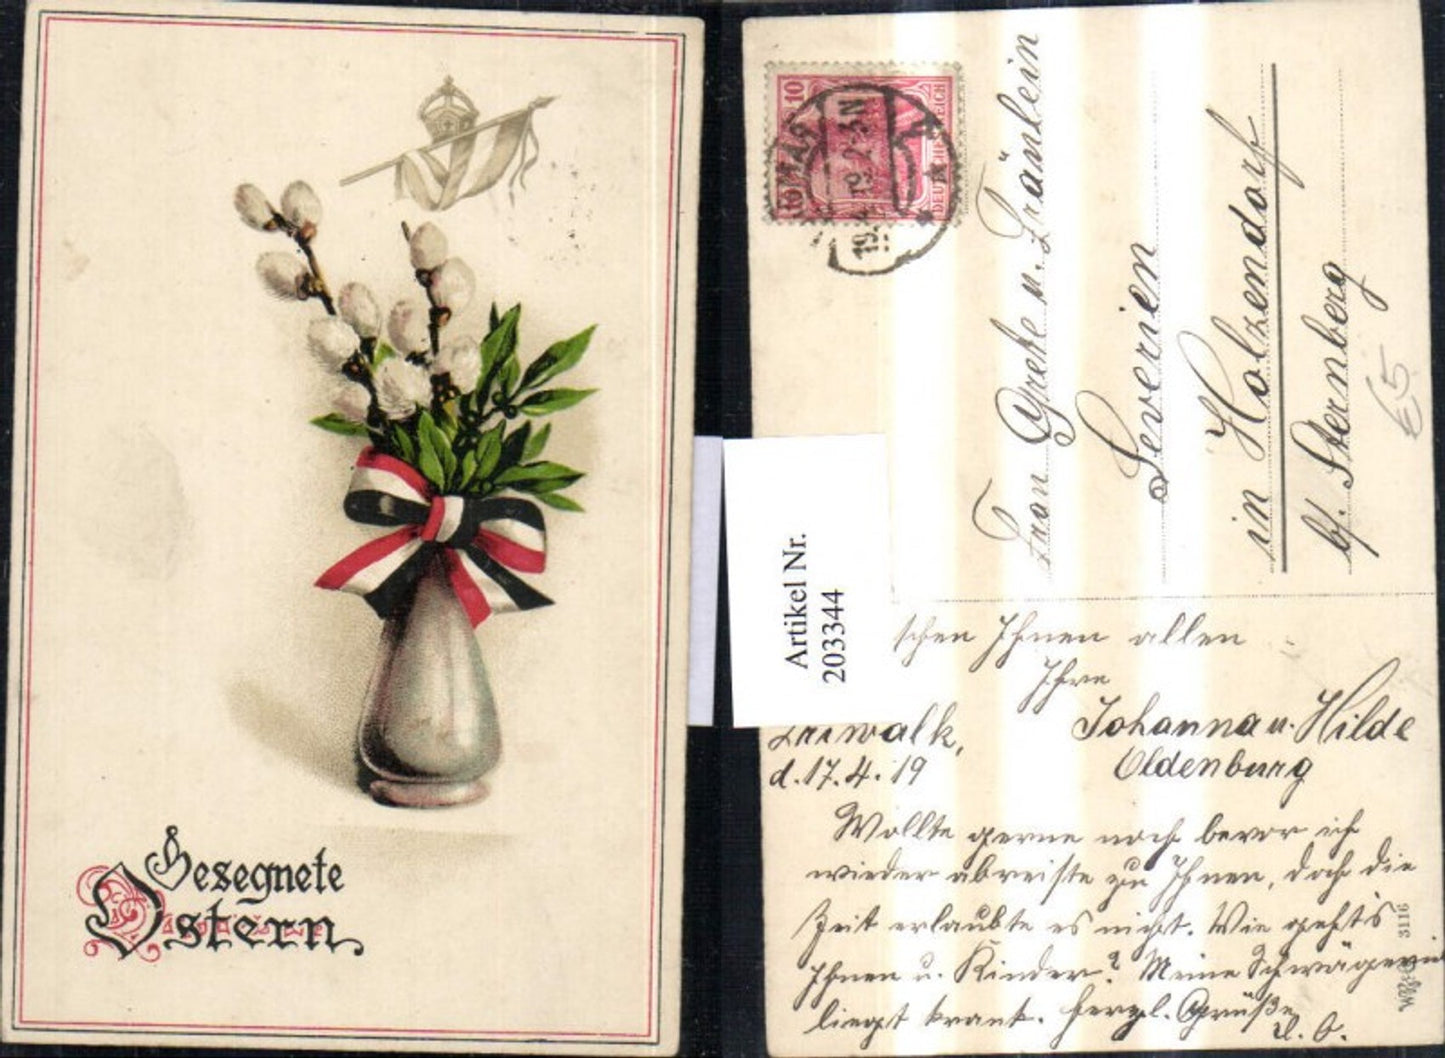 Gesegnete
Ostern.
10
DEUTSCHES REICH
19.4.19. 2-3N
Frau Grete u. Fräulein
Severien
in Holzendorf
b/ Sternberg
€5
Artikel Nr.
203344
schen Ihnen allen
Ihre
Johanna u. Hilde
Oldenburg
d. 17.4.19
Wollte gerne noch bevor ich
wieder abreiste zu Ihnen, doch die
Zeit erlaubte es nicht. Wie geht's
Ihnen u. Kinder? Meine Schwägerin
liegt krank. Herzl. Grüße
d. O.
3116